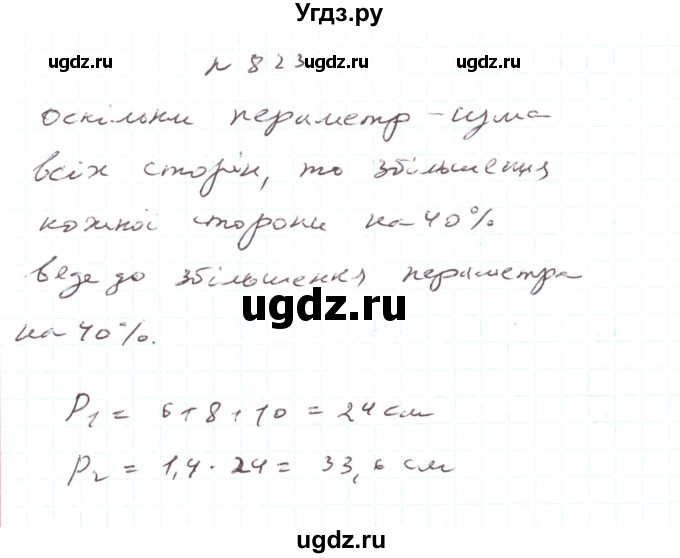 Угдз.ру
ugdz.ru ugdz.ru
№ 823
оскільки периметр - сума
всіх сторін, то збільшення
кожної сторони на 40%
веде до збільшення периметра
ugdz.ru
на 40%.
P₁ = 6+8+10 = 24 см
ugdz.ru ugdz.ru
P₂ = 1,4 · 24 = 33,6 см
ugdz.ru